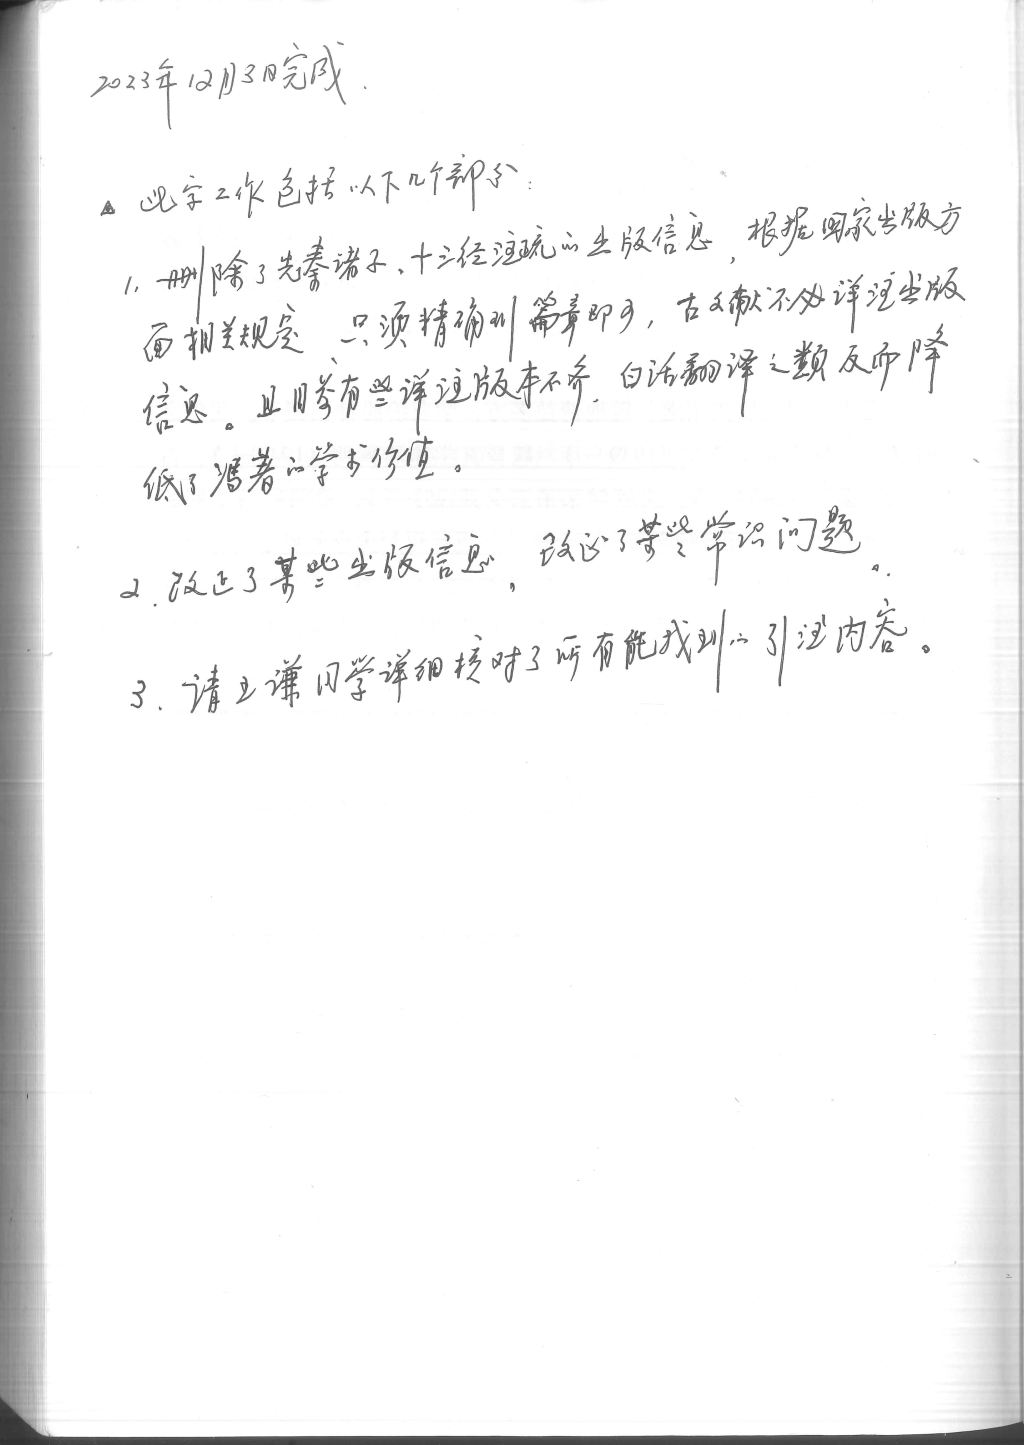 2023年12月3日完成.
▲ 此字工作包括以下几个部分:
1. 删除了先秦诸子、十三经注疏的出版信息，根据国家出版方
面相关规定、只须精确到篇章即可，古文献不必详注出版
信息。且目等有些详注版本不齐、白话翻译之类反而降
低了冯著的学术价值。
2. 改正了某些出版信息，改正了某些常识问题。
3. 请王谦同学详细核对了所有能找到的引注内容。